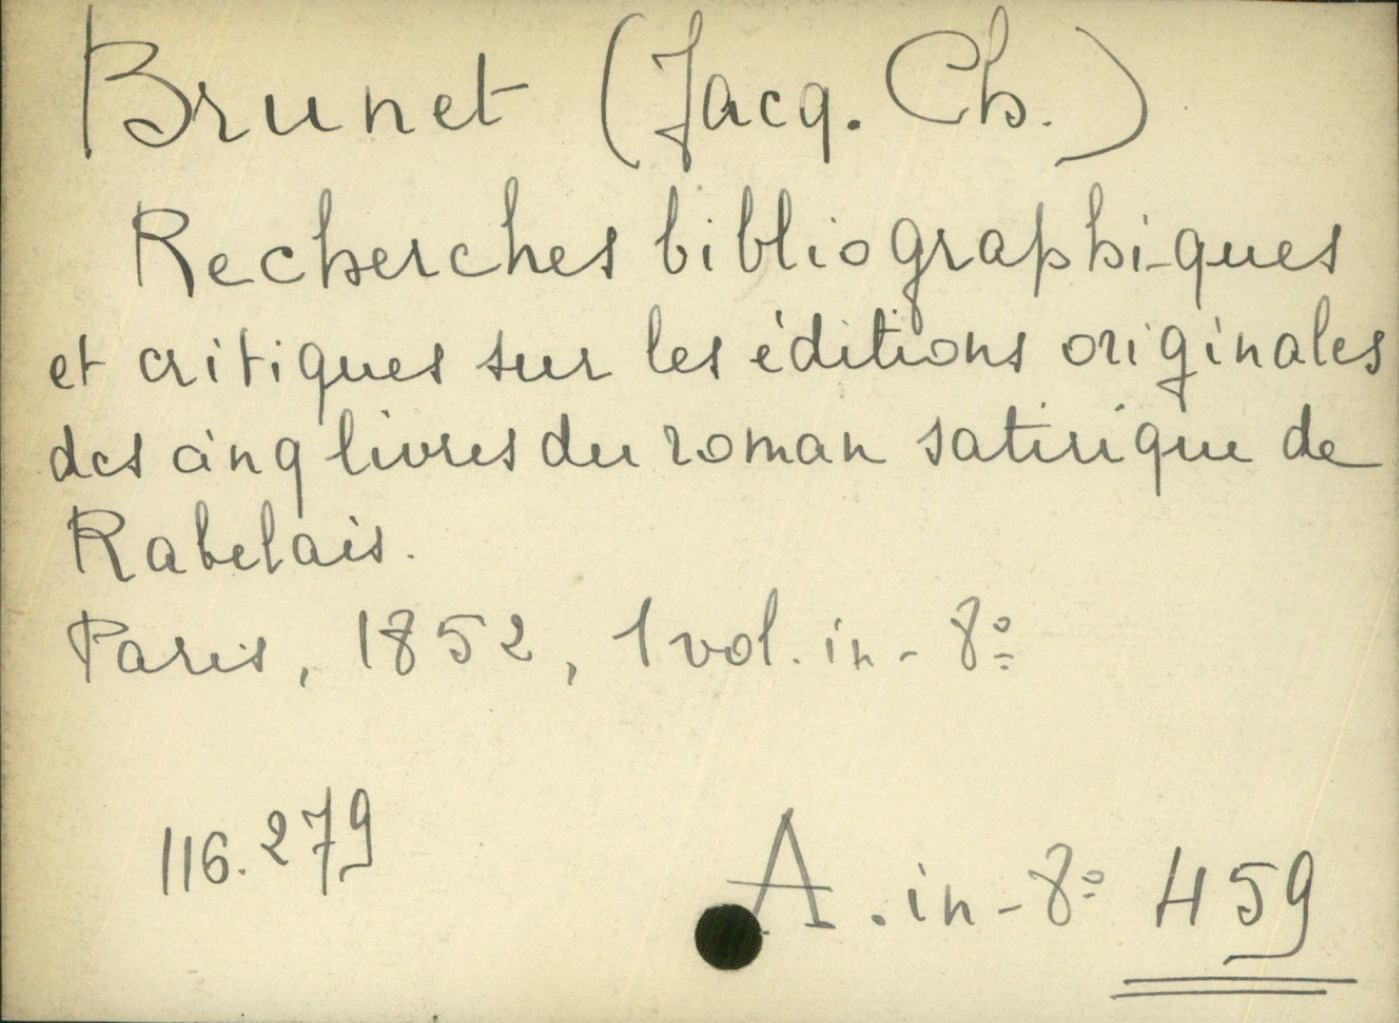 Brunet (Jacq. Ch.)
Recherches bibliographiques
et critiques sur les éditions originales
des cinq livres du roman satirique de
Rabelais.
Paris, 1852, 1 vol. in-8º
116.279
A. in-8º 459